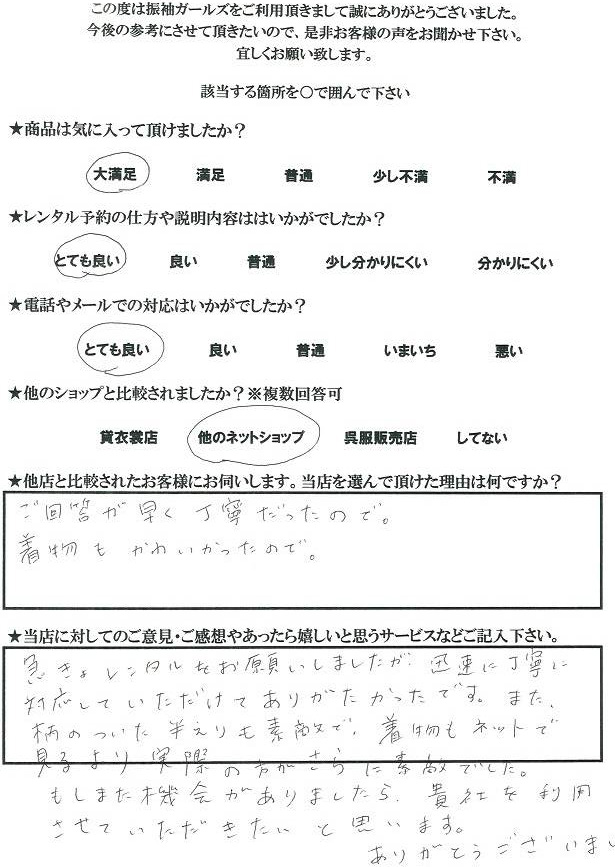 この度は振袖ガールズをご利用頂きまして誠にありがとうございました。
今後の参考にさせて頂きたいので、是非お客様の声をお聞かせ下さい。
宜しくお願い致します。
該当する箇所を○で囲んで下さい
★商品は気に入って頂けましたか？
大満足 満足 普通 少し不満 不満
★レンタル予約の仕方や説明内容ははいかがでしたか？
とても良い 良い 普通 少し分かりにくい 分かりにくい
★電話やメールでの対応はいかがでしたか？
とても良い 良い 普通 いまいち 悪い
★他のショップと比較されましたか？※複数回答可
貸衣裳店 他のネットショップ 呉服販売店 してない
★他店と比較されたお客様にお伺いします。当店を選んで頂けた理由は何ですか？
ご回答が早く丁寧だったので。
着物もかわいかったので。
★当店に対してのご意見・ご感想やあったら嬉しいと思うサービスなどご記入下さい。
急きょレンタルをお願いしましたが、迅速に丁寧に
対応していただけてありがたかったです。また、
柄のついた半えりも素敵で、着物もネットで
見るより実際の方がさらに素敵でした。
もしまた機会がありましたら、貴社を利用
させていただきたいと思います。
ありがとうございまし